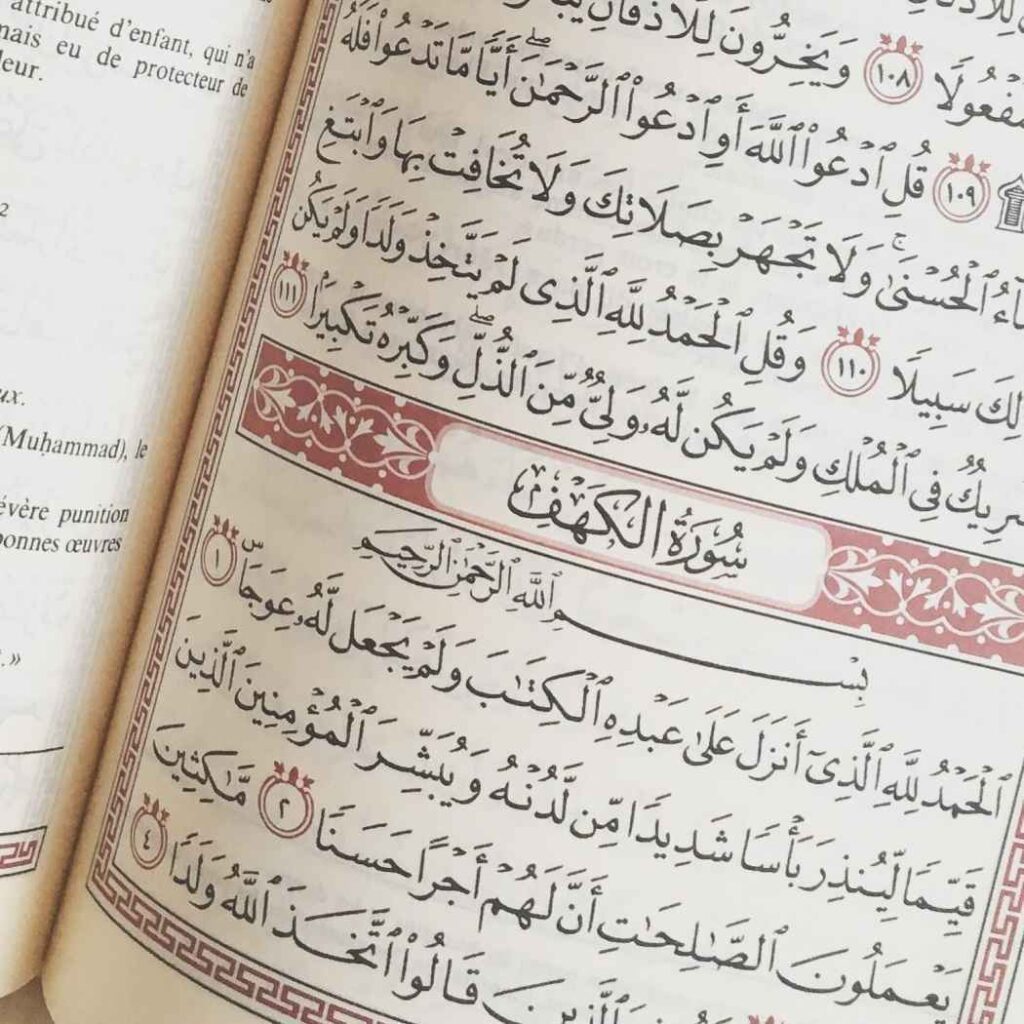 attribué d'enfant, qui n'a
mais eu de protecteur de
leur.
2
ux.
(Muḥammad), le
évère punition
onnes œuvres
.»
فْعُولًا ١٠٨ وَيَخِرُّونَ لِلْأَذْقَانِ
١٠٩ قُلِ ٱدْعُوا۟ ٱللَّهَ أَوِ ٱدْعُوا۟ ٱلرَّحْمَٰنَ ۖ أَيًّا مَّا تَدْعُوا۟ فَلَهُ
اءُ ٱلْحُسْنَىٰ ۚ وَلَا تَجْهَرْ بِصَلَاتِكَ وَلَا تُخَافِتْ بِهَا وَٱبْتَغِ
لِكَ سَبِيلًا ١١٠ وَقُلِ ٱلْحَمْدُ لِلَّهِ ٱلَّذِى لَمْ يَتَّخِذْ وَلَدًا وَلَمْ يَكُن
رِيكٌ فِى ٱلْمُلْكِ وَلَمْ يَكُن لَّهُۥ وَلِىٌّ مِّنَ ٱلذُّلِّ ۖ وَكَبِّرْهُ تَكْبِيرًۢا ١١١
سُورَةُ الكَهْفِ
بِسْمِ ٱللَّهِ ٱلرَّحْمَٰنِ ٱلرَّحِيمِ
ٱلْحَمْدُ لِلَّهِ ٱلَّذِىٓ أَنزَلَ عَلَىٰ عَبْدِهِ ٱلْكِتَٰبَ وَلَمْ يَجْعَل لَّهُۥ عِوَجَاۜ ١
قَيِّمًا لِّيُنذِرَ بَأْسًا شَدِيدًا مِّن لَّدُنْهُ وَيُبَشِّرَ ٱلْمُؤْمِنِينَ ٱلَّذِينَ
يَعْمَلُونَ ٱلصَّٰلِحَٰتِ أَنَّ لَهُمْ أَجْرًا حَسَنًا ٢ مَّٰكِثِينَ
ٱلَّذِينَ قَالُوا۟ ٱتَّخَذَ ٱللَّهُ وَلَدًا ٤